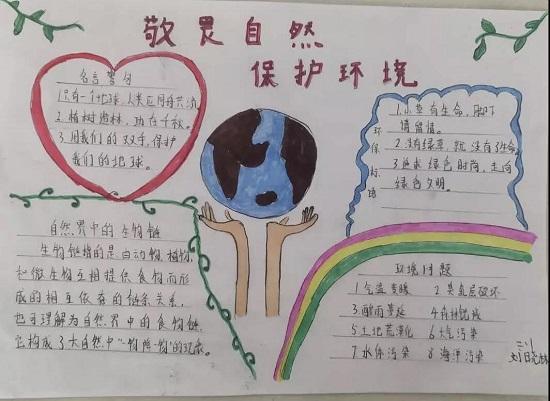 敬畏自然
保护环境
名言警句
1.只有一个地球,人类应同舟共济
2.植树造林,功在千秋。
3.用我们的双手,保护
我们的地球。
环保标语
1.小草有生命,脚下
请留情。
2.没有绿草,就没有生命。
3.追求绿色时尚,走向
绿色文明。
自然界中的生物链
生物链指的是由动物、植物,
和微生物互相提供食物而形
成的相互依存的链条关系,
也可理解为自然界中的食物链,
它构成了大自然中"一物降一物"的现象。
环境问题
1气温变暖 2臭氧层破坏
3酸雨蔓延 4森林锐减
5土地荒漠化 6大气污染
7水体污染 8海洋污染
三川